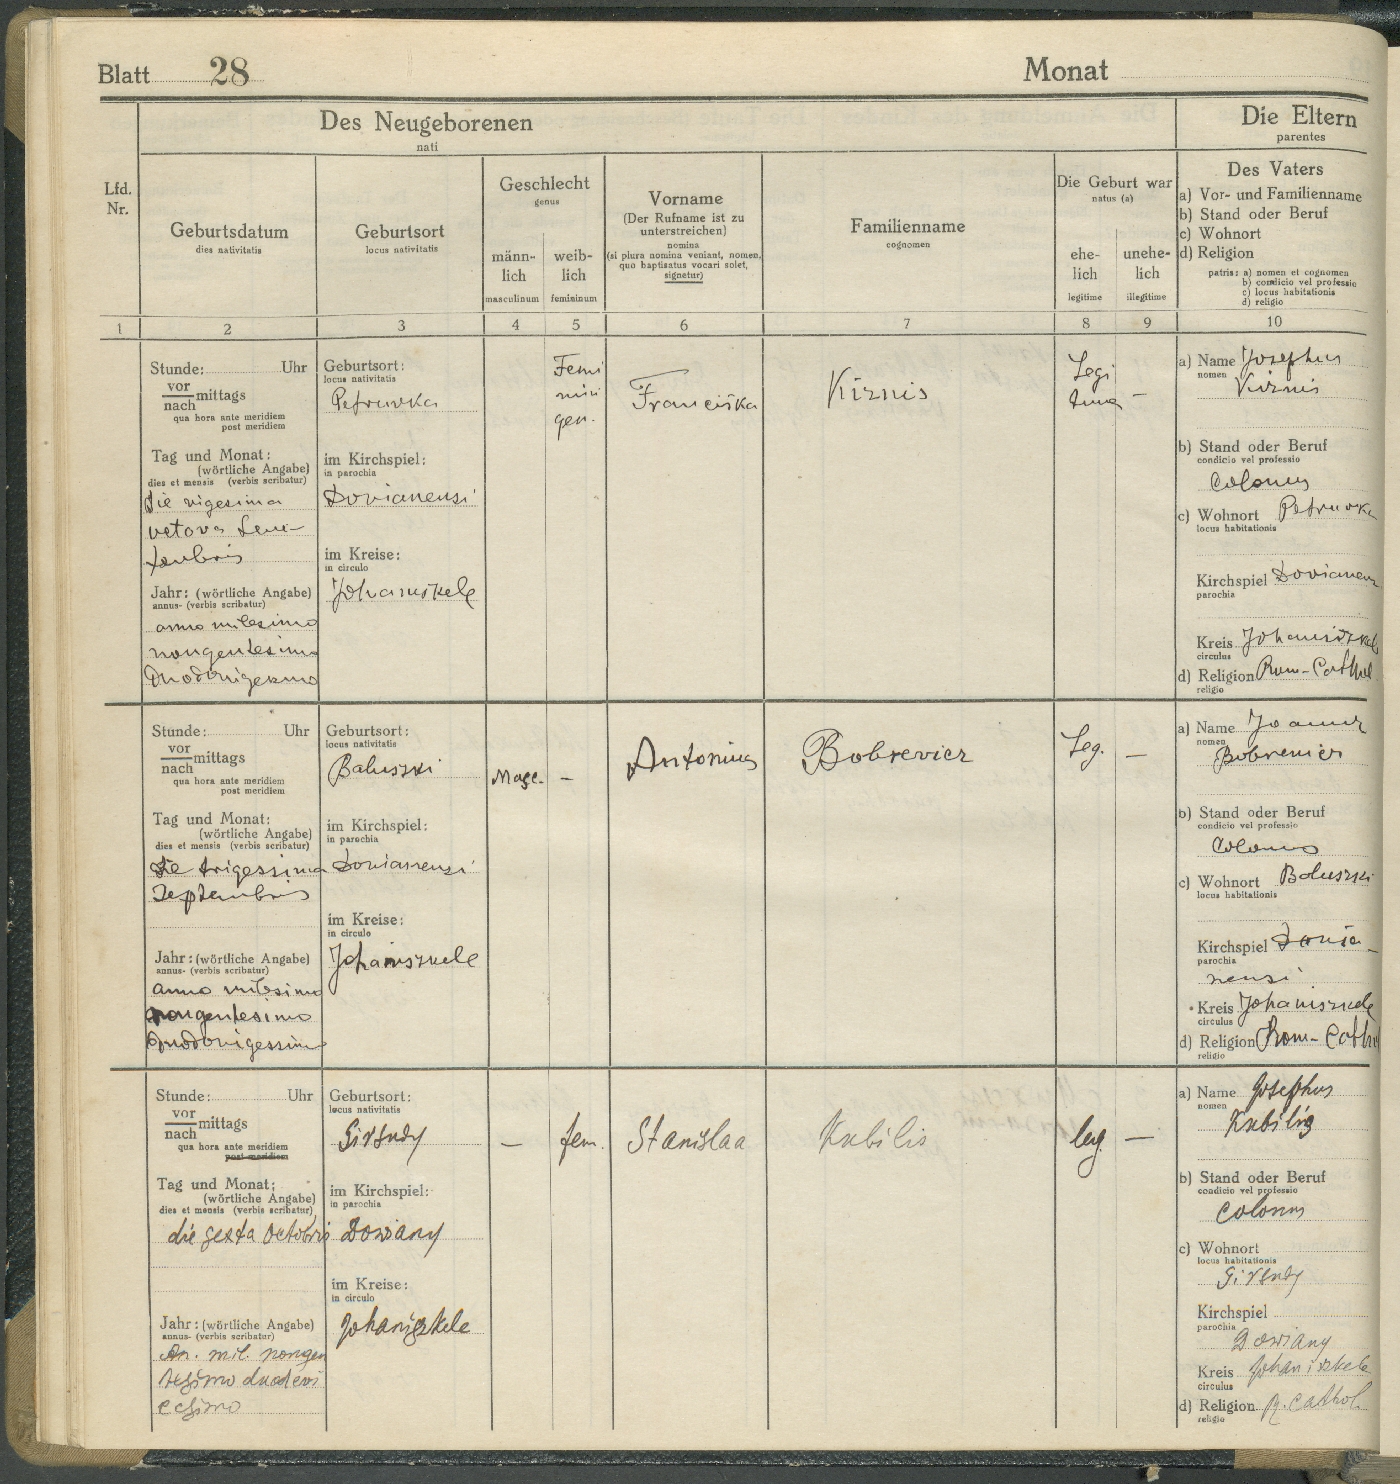 Blatt 28
Monat
Des Neugeborenen
nati
Die Eltern
parentes
Lfd.
Nr.
Geburtsdatum
dies nativitatis
Geburtsort
locus nativitatis
Geschlecht
genus
männ-
lich
masculinum
weib-
lich
femininum
Vorname
(Der Rufname ist zu
unterstreichen)
nomina
(si plura nomina veniant, nomen,
quo baptisatus vocari solet,
signetur)
Familienname
cognomen
Die Geburt war
natus (a)
ehe-
lich
legitime
unehe-
lich
illegitime
Des Vaters
a) Vor- und Familienname
b) Stand oder Beruf
c) Wohnort
d) Religion
patris: a) nomen et cognomen
b) condicio vel professio
c) locus habitationis
d) religio
1 2 3 4 5 6 7 8 9 10
Stunde: Uhr
vor
nach mittags
qua hora ante meridiem
post meridiem
Tag und Monat:
(wörtliche Angabe)
dies et mensis (verbis scribatur)
die vigesima
Jahr: (wörtliche Angabe)
annus- (verbis scribatur)
anno milesimo
nongentesimo
duodevigesimo
Geburtsort:
locus nativitatis
Petruvka
im Kirchspiel:
in parochia
Dovianensi
im Kreise:
in circulo
Johaniskele
Femi
nini
gen.
Franciska
Kirznis
Legi
tima –
a) Name Josephus
nomen
b) Stand oder Beruf
condicio vel professio
Colonus
c) Wohnort Petruvka
locus habitationis
Kirchspiel Dovianen
parochia
Kreis
circulus
d) Religion Rom-Cathol
religio
Stunde: Uhr
vor
nach mittags
qua hora ante meridiem
post meridiem
Tag und Monat:
(wörtliche Angabe)
dies et mensis (verbis scribatur)
die trigessima
Septembris
Jahr: (wörtliche Angabe)
annus- (verbis scribatur)
anno milesimo
nongentesimo
duodevigessimo
Geburtsort:
locus nativitatis
Baluszki
im Kirchspiel:
in parochia
Dovianensi
im Kreise:
in circulo
Johaniszkele
Masc. –
Antonius
Bobrevicz
Leg. –
a) Name Joannes
nomen
Bobrevicz
b) Stand oder Beruf
condicio vel professio
Colonus
c) Wohnort Baluszki
locus habitationis
Kirchspiel Dovia-
parochia
nensi
Kreis Johaniszkele
circulus
d) Religion Rom-Cathol
religio
Stunde: Uhr
vor
nach mittags
qua hora ante meridiem
post meridiem
Tag und Monat:
(wörtliche Angabe)
dies et mensis (verbis scribatur)
die sexta Octobris
Jahr: (wörtliche Angabe)
annus- (verbis scribatur)
An. mil. nongen
tesimo duodevi
cesimo
Geburtsort:
locus nativitatis
Girsudy
im Kirchspiel:
in parochia
Dowiany
im Kreise:
in circulo
Johaniszkele
– fem.
Stanislaa
Kubilis
leg. –
a) Name Josephus
nomen
Kubilis
b) Stand oder Beruf
condicio vel professio
Colonus
c) Wohnort
locus habitationis
Girsudy
Kirchspiel
parochia
Dowiany
Kreis Johaniszkele
circulus
d) Religion R. Cathol.
religio